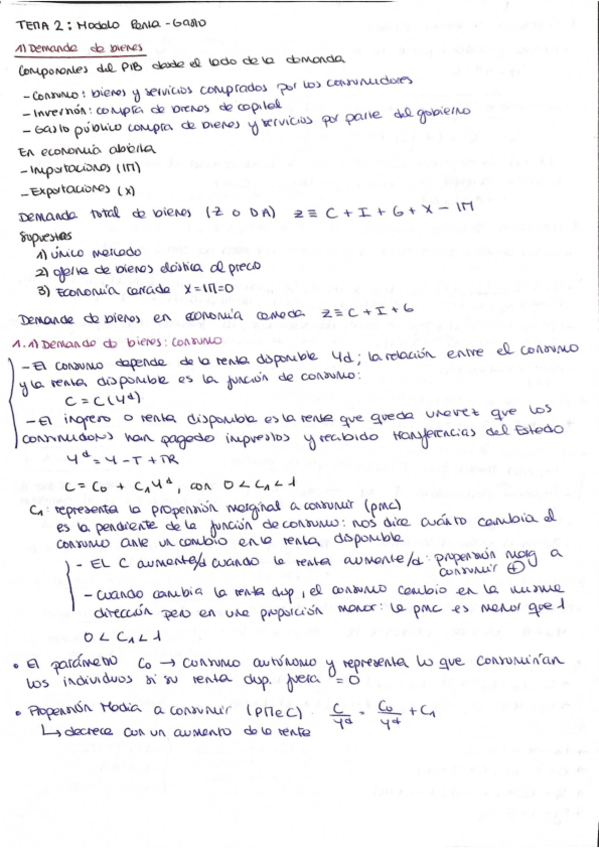 TEMA 2: Modelo Renta-Gasto
1) Demanda de bienes
Componentes del PIB desde el lado de la demanda
- Consumo: bienes y servicios comprados por los consumidores
- Inversión: compra de bienes de capital
- Gasto público compra de bienes y servicios por parte del gobierno
En economía abierta
- Importaciones (IM)
- Exportaciones (X)
Demanda total de bienes (Z o DA) Z ≡ C + I + G + X - IM
Supuestos
1) Único mercado
2) oferta de bienes elástica al precio
3) Economía cerrada X=IM=0
Demanda de bienes en economía cerrada Z ≡ C + I + G
1.1) Demanda de bienes: Consumo
- El consumo depende de la renta disponible Yd; la relación entre el consumo
y la renta disponible es la función de consumo:
C = C(Yd)
- El ingreso o renta disponible es la renta que queda una vez que los
consumidores han pagado impuestos y recibido transferencias del Estado
Yd = Y - T + TR
C = C0 + C1Yd, con 0 < C1 < 1
C1: representa la propensión marginal a consumir (pmc)
es la pendiente de la función de consumo: nos dice cuánto cambia el
consumo ante un cambio en la renta disponible
- El C aumenta/d cuando la renta aumenta/d: propensión marg a
consumir ⊕
- Cuando cambia la renta disp, el consumo cambia en la misma
dirección pero en una proporción menor: la pmc es menor que 1
0 < C1 < 1
• El parámetro C0 → consumo autónomo y representa lo que consumirían
los individuos si su renta disp. fuera = 0
• Propensión Media a consumir (PMeC) C/Yd = C0/Yd + C1
↳ decrece con un aumento de la renta